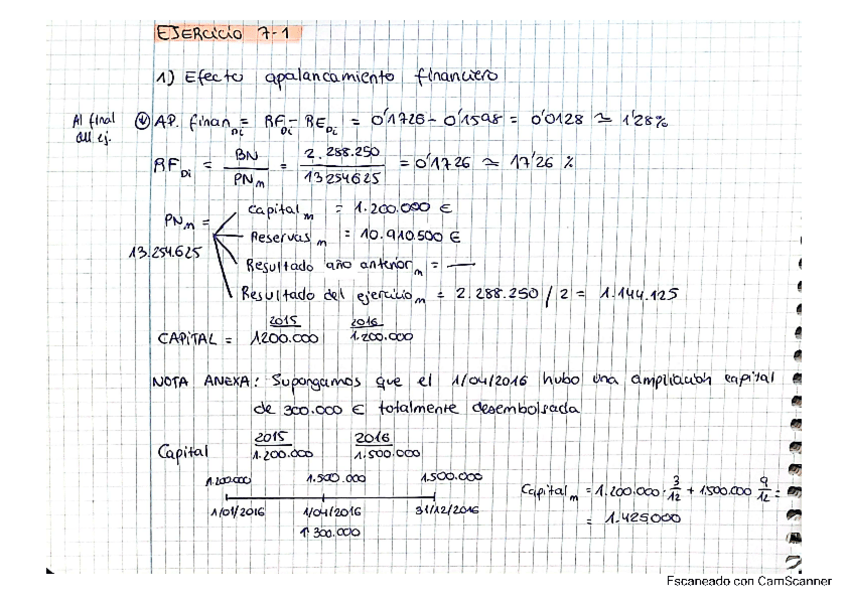 EJERCICIO 7-1
1) Efecto apalancamiento financiero
Al final del ej. (*) AP. Finan Di = RF Di - RE Di = 0'1726 - 0'1598 = 0'0128 ≃ 1'28%
RF Di = BN / PNm = 2.288.250 / 13254625 = 0'1726 ≃ 17'26 %
PNm = 13.254.625
Capital m = 1.200.000 €
Reservas m = 10.910.500 €
Resultado año anterior m = —
Resultado del ejercicio m = 2.288.250 / 2 = 1.144.125
2015 2016
CAPITAL = 1200.000 1.200.000
NOTA ANEXA: Supongamos que el 1/04/2016 hubo una ampliación capital
de 300.000 € totalmente desembolsada
2015 2016
Capital 1.200.000 1.500.000
1.200000 1.500.000 1.500.000
1/01/2016 1/04/2016 31/12/2016
↑ 300.000
Capital m = 1.200.000 · 3/12 + 1.500.000 9/12 =
= 1.425000
Escaneado con CamScanner